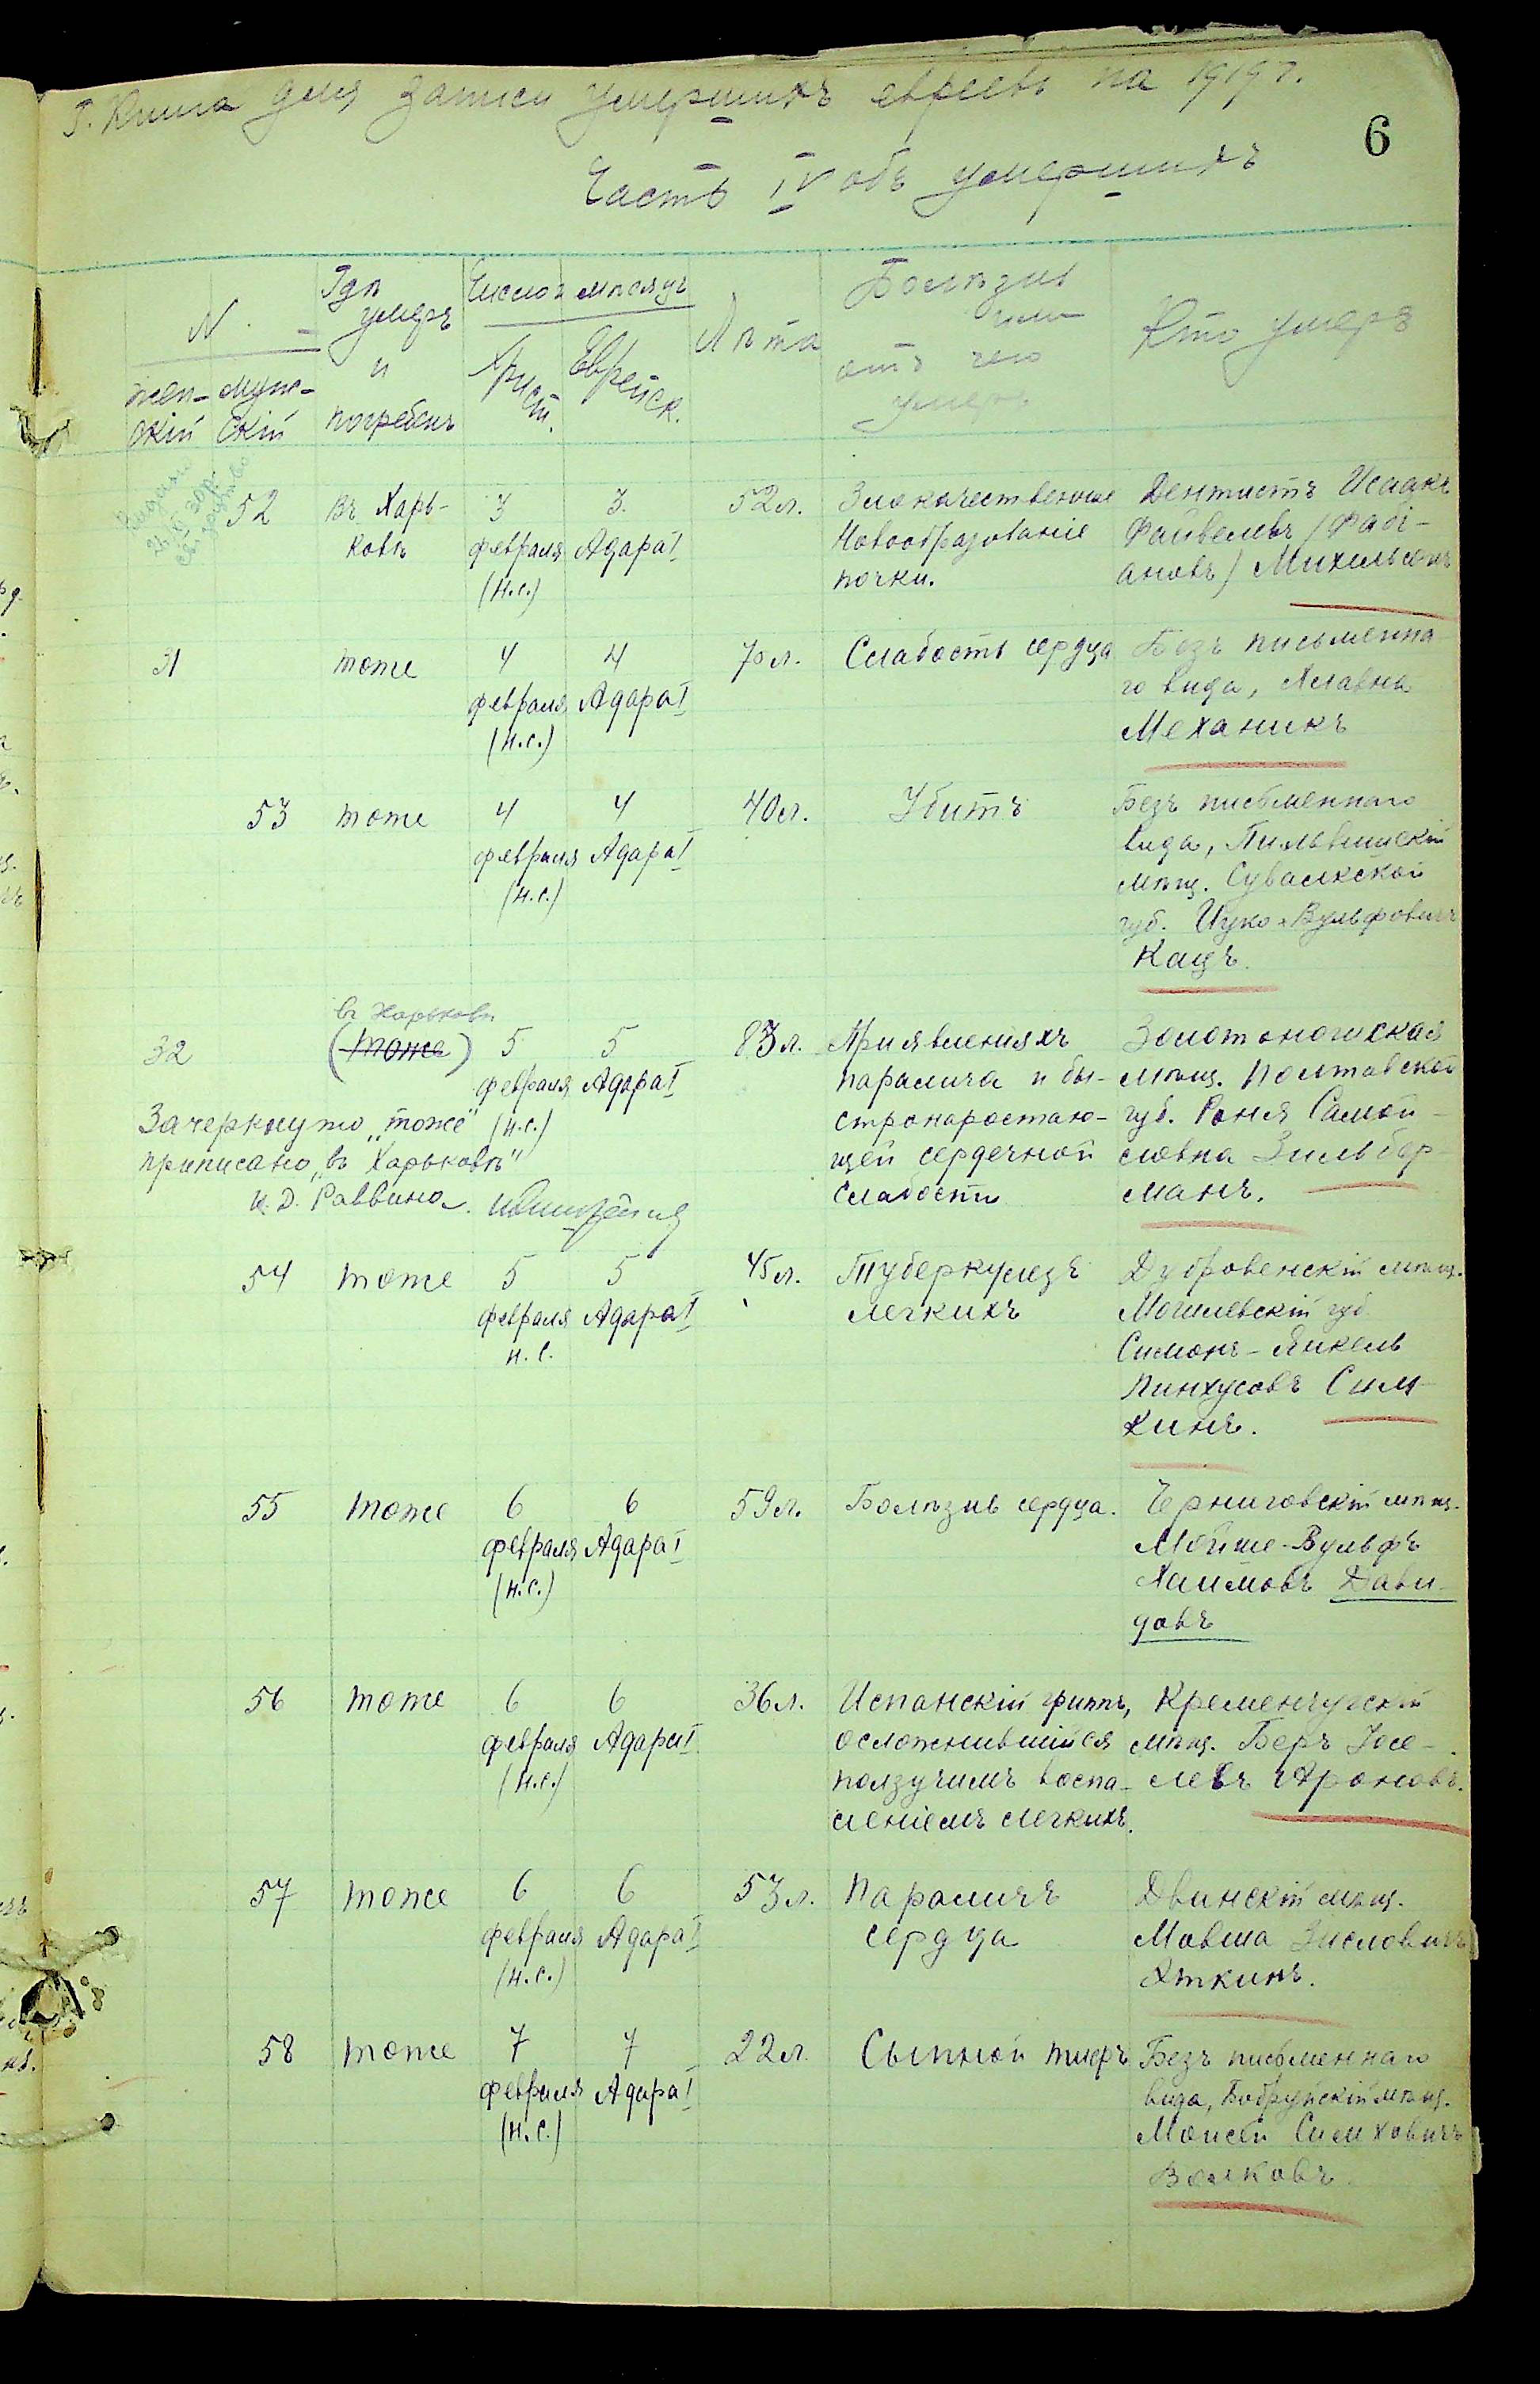 Книга для записи умершихъ евреевъ на 1919 г.
6
Часть IV объ умершихъ
N
Гдѣ умеръ и погребенъ
Число и мѣсяцъ
Лѣта
Болѣзнь или отъ чего умеръ
Кто умеръ
жен-скій
муж-скій
Христ.
Еврейск.
52 въ Харь- 3 3. 52 л. Злокачественное Дентистъ Исаакъ
ковѣ февраля Адара I Новообразованіе Файвелевъ (Фабі-
(н.с.) почки. ановъ) Михельсонъ
31 тоже 4 4 70 л. Слабость сердца Безъ письменна
февраля Адара I го вида, Хлавна
(н.с.) Механикъ
53 тоже 4 4 40 л. Убитъ Безъ письменнаго
февраля Адара I вида, Пильвишскій
(н.с.) мѣщ. Сувалкской
губ. Ицко-Вульфовичъ
Кацъ.
въ Харьковѣ
32 (тоже) 5 5 83 л. При явленіяхъ Золотоношская
февраля Адара I паралича и бы- мѣщ. Полтавской
Зачеркнуто „тоже" (н.с.) стронаростаю- губ. Роня Самой-
приписано „въ Харьковѣ" щей сердечной ловна Зильбер-
И. Д. Раввина слабости манъ.
54 тоже 5 5 45 л. Туберкулезъ Дубровенскій мѣщ.
февраля Адара I легкихъ Могилевскій губ.
н.с. Симонъ-Янкель
Пинхусовъ Сим-
кинъ.
55 тоже 6 6 59 л. Болѣзнь сердца. Черниговскій мѣщ.
февраля Адара I Мойше-Вульфъ
(н.с.) Хаимовъ Дави-
довъ
56 тоже 6 6 36 л. Испанскій гриппъ, Кременчугскій
февраля Адара I осложнившійся мѣщ. Беръ Іосе-
(н.с.) ползучимъ воспа- левъ Ароновъ.
леніемъ легкихъ.
57 тоже 6 6 53 л. Параличъ Двинскій мѣщ.
февраля Адара I сердца Мовша Зисловичъ
(н.с.) Хткинъ.
58 тоже 7 7 22 л. Сыпной тифъ Безъ письменнаго
февраля Адара I вида, Бобруйскій мѣщ.
(н.с.) Моисей Симховичъ
Волковъ.